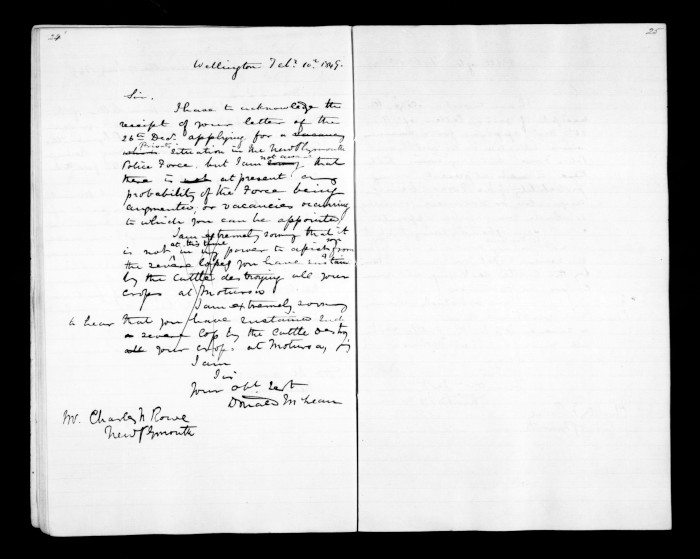 24
25
Wellington Feby. 10th. 1849.
Sir.
I have to acknowledge the
receipt of your letter of the
26th Decr. applying for a
Private
situation in the New Plymouth
not aware
Police Force. but I am that
there is at present any
probability of the Force being
augmented, or vacancies occurring
to which you can be appointed,
I am extremely sorry that it
at this time
is not in my power to assist you from
the severe losses you have sustain
by the Cattle destroying all your
crops at Moturoa
I am extremely sorry
to hear that you have sustained such
a severe loss by the Cattle destroy
all your crops at Moturoa,
I am
Sir
Your Obt. Servt
Donald McLean
Mr. Charles N Rowe
New Plymouth